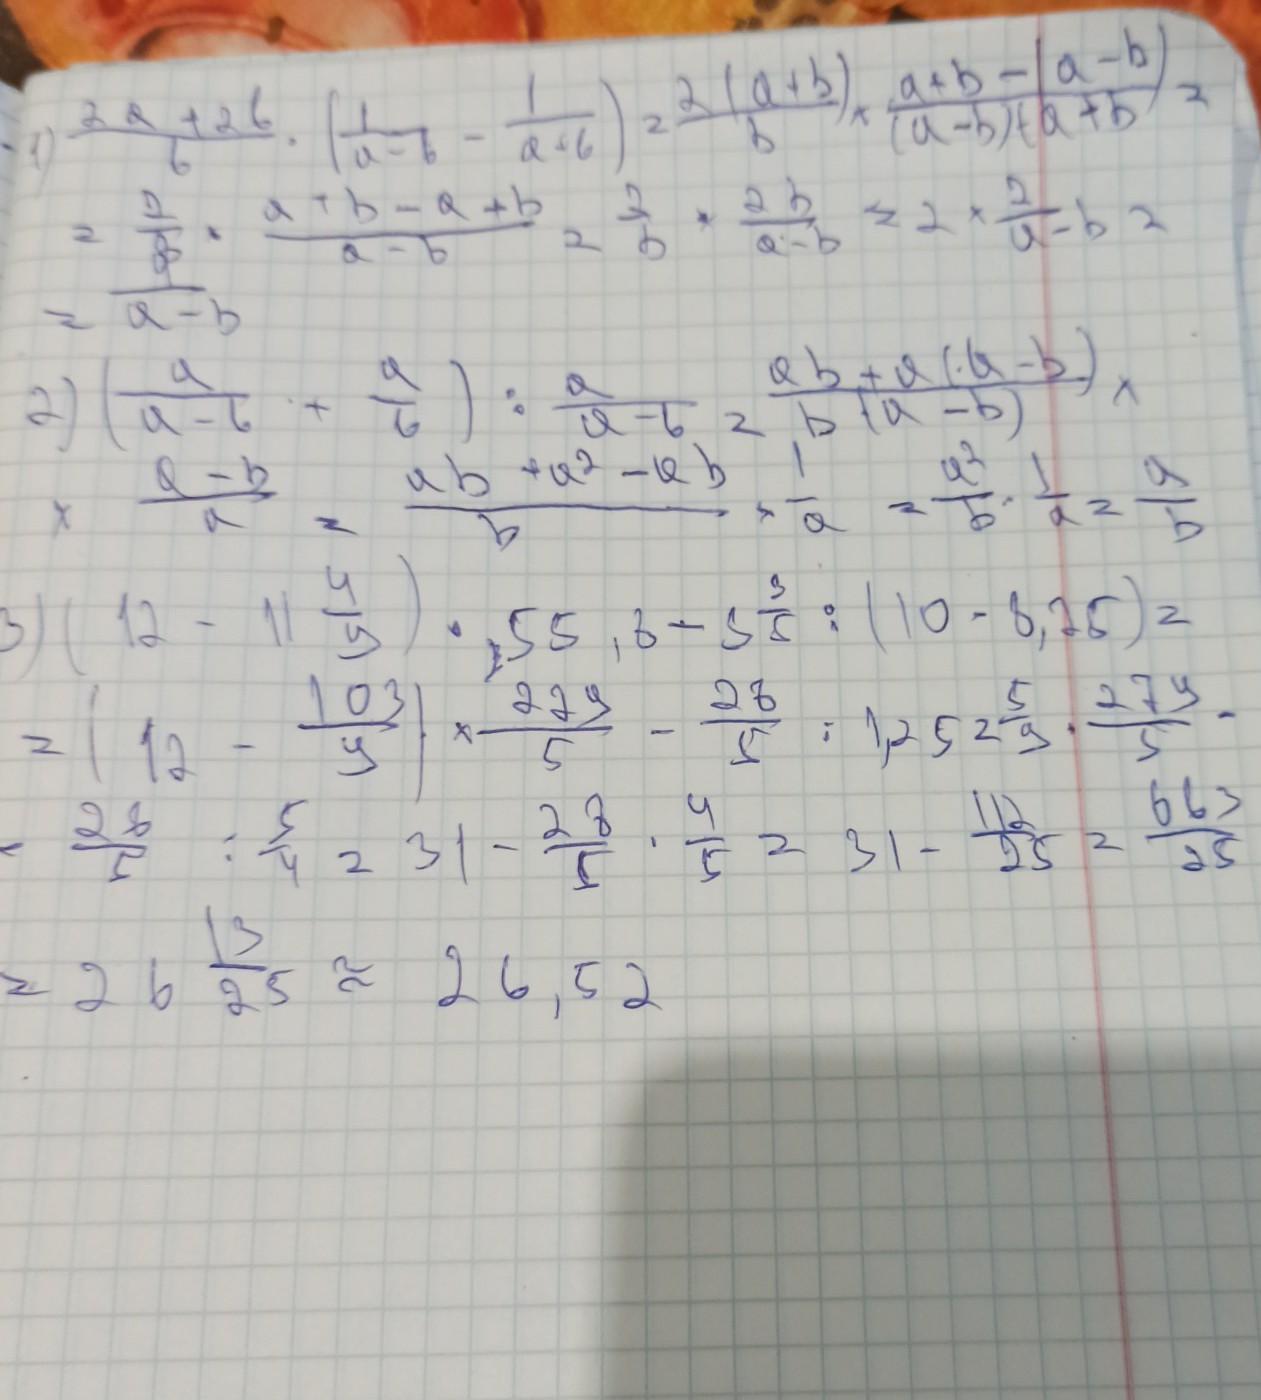 1) (2a+2b)/b · (1/(a-b) - 1/(a+b)) = 2(a+b)/b × (a+b-(a-b))/((a-b)(a+b)) =
= 2/b · (a+b-a+b)/(a-b) = 2/b · 2b/(a-b) = 2 × 2/(a-b) =
= 4/(a-b)
2) (a/(a-b) + a/b) : a/(a-b) = (ab+a(a-b))/(b(a-b)) ×
× (a-b)/a = (ab+a²-ab)/b × 1/a = a²/b · 1/a = a/b
3) (12 - 11 4/9) · 55,8 - 5 3/5 : (10 - 8,75) =
= (12 - 103/9) × 279/5 - 28/5 : 1,25 = 5/9 · 279/5 -
- 28/5 : 5/4 = 31 - 28/5 · 4/5 = 31 - 112/25 = 663/25
= 26 13/25 ≈ 26,52